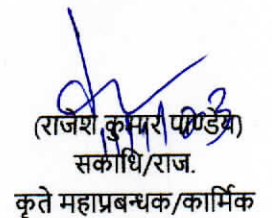 (राजेश कुमार पाण्डेय)
सकाधि/राज.
कृते महाप्रबन्धक/कार्मिक